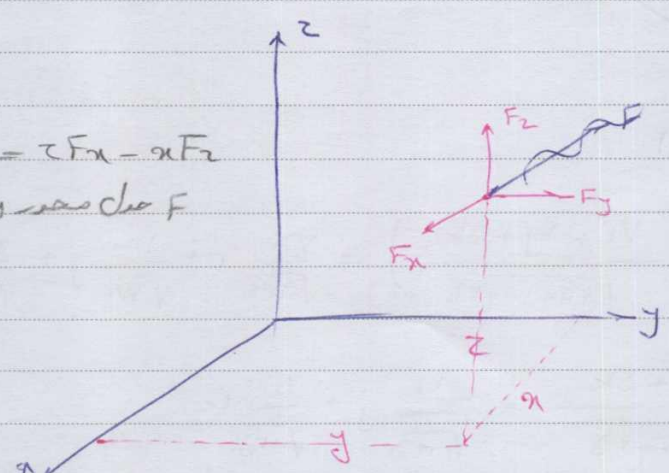 z
= zFx - xFz
F حول محور
Fz
F
Fy
Fx
y
z
x
y
x